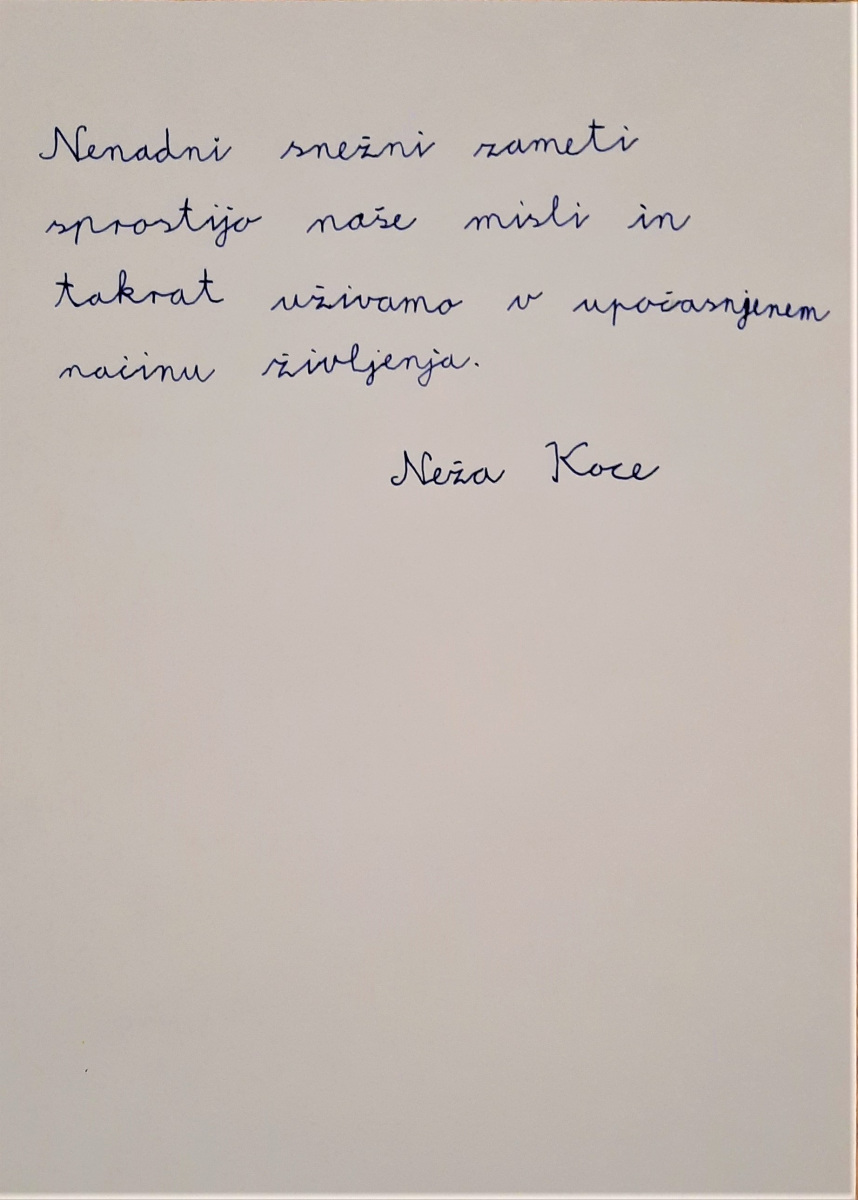 Nenadni snežni zameti
sprostijo naše misli in
takrat uživamo v upočasnjenem
načinu življenja.
Neža Koce